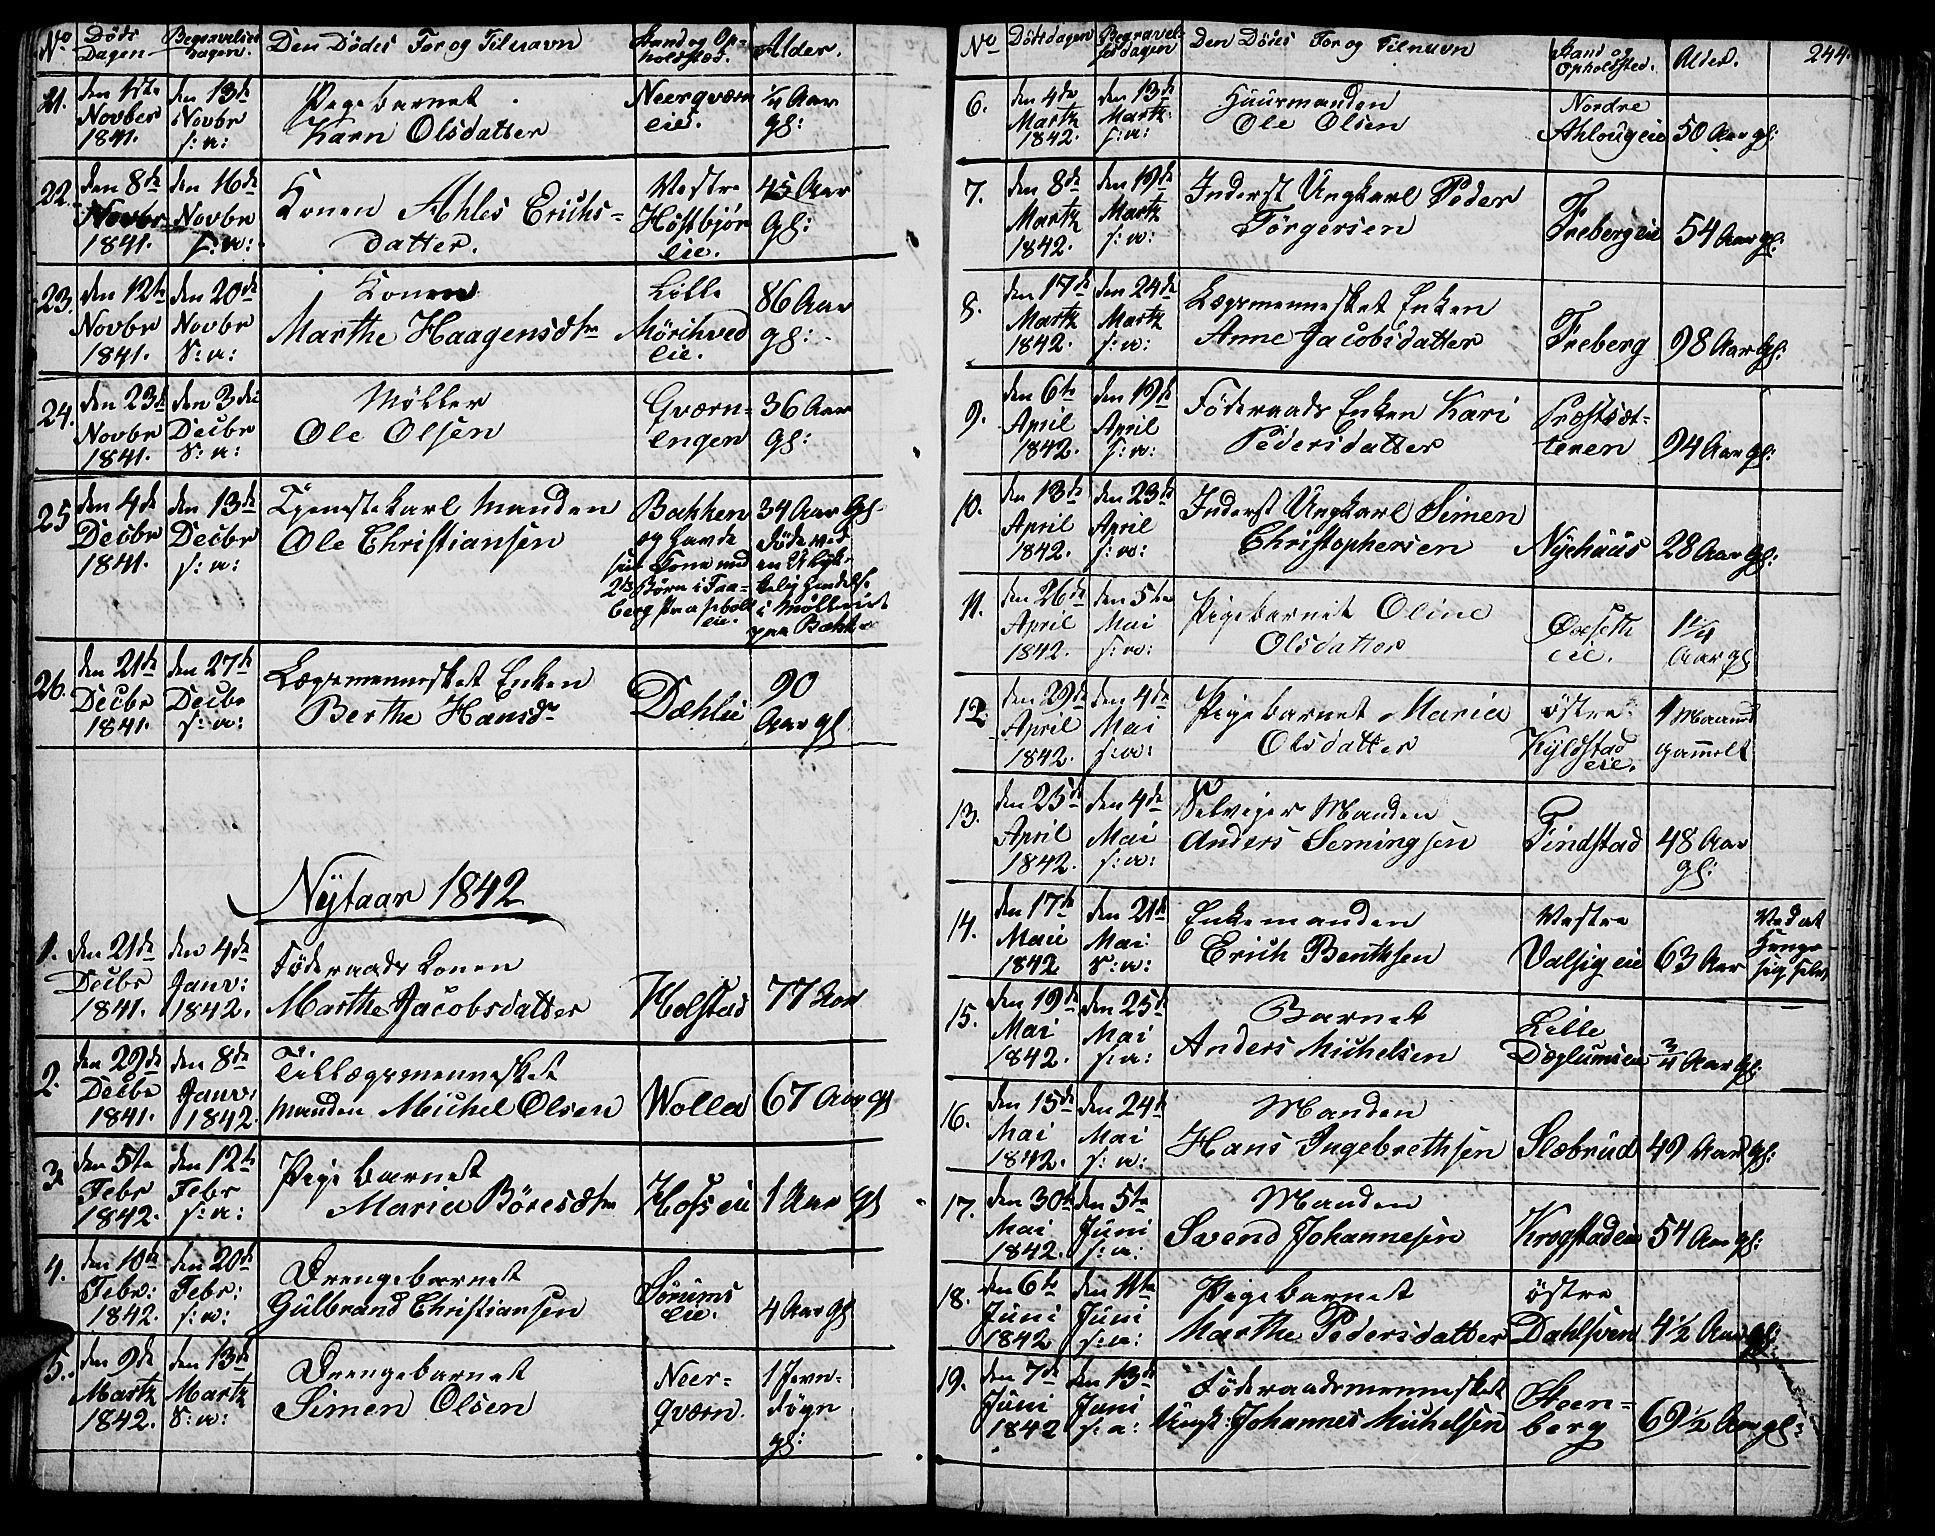 No
Døds Dagen
Begravelses Dagen.
Den Dødes For og Tilnavn
Stand og Opholdsted.
Alder.
21.
den 1ste Novber 1841.
den 13de Novbr s: a:
Pigebarnet
Karn Olsdatter
Neerqværn eie.
1/4 Aar gl:
22.
den 8de Novbr 1841.
den 16de Novbr s: a:
Konen Ahles Erichs-
datter.
Vestre Høstbjør eie.
45 Aar gl:
23.
den 12te Novbr 1841.
den 20de Novbr s: a:
Konen
Marthe Haagensdtr
Lille Mörihved eie.
86 Aar gl:
24.
den 23de Novbr 1841.
den 3die Decbr s: a:
Møller
Ole Olsen
Gværn-
engen
36 Aar gl:
25
den 4de Decbr 1841.
den 13de Decbr s: a:
Tjenestekarl Manden
Ole Christiansen
Bakken
og havde
sin Kone med
2de Børn i Fra-
berg
eie.
34 Aar gl.
døde ved
en Ulyk-
kelig Hendelse
i Mølleriet
paa Bakke
26.
den 21de Decbr 1841.
den 27de Decbr s: a:
Lægsmennesket Enken
Berthe Hansdr
Dæhlie
90 Aar gl
Nytaar 1842
1.
den 21de Decbr 1841.
den 4de Janv: 1842.
Föderaads Konen
Marthe Jacobsdatter
Holstad
77 Aar
2.
den 29de Decbr 1841.
den 8de Janv: 1842.
Tillægsmennesket
Manden Michel Olsen
Wolla
67 Aar gl
3.
den 5te Febr 1842.
den 12te Febr s: a:
Pige barnet
Maria Böresdtr
Hofs eie
1 Aar gl
4.
den 10de Febr: 1842.
den 20de Febr: s: a:
Drengebarnet
Gulbrand Christiansen
Sörums eie.
4 Aar gl
5.
den 9de Martz 1842.
den 13de Martz s: a:
Drengebarnet
Simen Olsen
Neer-
qværn.
1 Jevn-
døgn
gl:
No
Dödsdagen
Begravelsesdagen
Den Dödes For og Tilnavn
Stand og Opholdsted.
Alder.
244.
6.
den 4de Martz 1842.
den 13de Martz s: a:
Huusmanden
Ole Olsen
Nordre
Ahlougeie
50 Aar gl:
7.
den 8de Martz 1842.
den 19de Martz s: a:
Inderst Ungkarl Peder
Törgersen
Freberg eie
54 Aar gl:
8.
den 17de Martz 1842.
den 24de Martz s: a:
Lægsmennesket Enken
Anne Jacobsdatter
Freberg
98 Aar gl:
9.
den 6te April 1842.
den 19de April s: a:
Föderaads Enken Kari
Pedersdatter
Præstsæt-
teren
94 Aar gl:
10.
den 13de April 1842.
den 23de April s: a:
Inderst Ungkarl Simen
Christophersen
Nyehuus
28 Aar gl:
11.
den 26de April 1842.
den 5te Mai s: a:
Pigebarnet Oline
Olsdatter
Öxseth
eie.
1 1/4 Aar gl
12.
den 29de April 1842.
den 4de Mai s: a:
Pigebarnet Maria
Olsdatter
östre
Kyldstad
eie.
1 Maaned
gammelt
13.
den 25de April 1842.
den 4de Mai s: a:
Selveier Manden
Anders Semingsen
Findstad
48 Aar
gl:
14.
den 17de Maii 1842
den 21de Mai s: a:
Enkemanden
Erich Benthsen
Vestre
Valsig eie
63 Aar
Ved at
Henge
sig selv
15.
den 19de Mai 1842.
den 25de Mai s: a:
Barnet
Anders Michelsen
Lille
Dæglumseie
3/4 Aar gl:
16.
den 15de Mai 1842.
den 24de Mai s: a:
Manden
Hans Ingebrethsen
Slæbrud
49 Aar gl:
17.
den 30te Mai 1842.
den 5te Juni s: a:
Manden
Svend Johannesen
Krogstadeie
54 Aar gl:
18.
den 6te Juni 1842.
den 11te Juni s: a:
Pigebarnet
Marthe Pedersdatter
östre
Dahlsven
4 1/2 Aar gl:
19.
den 7de Juni 1842
den 13de Juni s: a:
Föderaadsmennesket
Ungk: Johannes Michelsen
Steen-
berg
69 1/2 Aar gl: